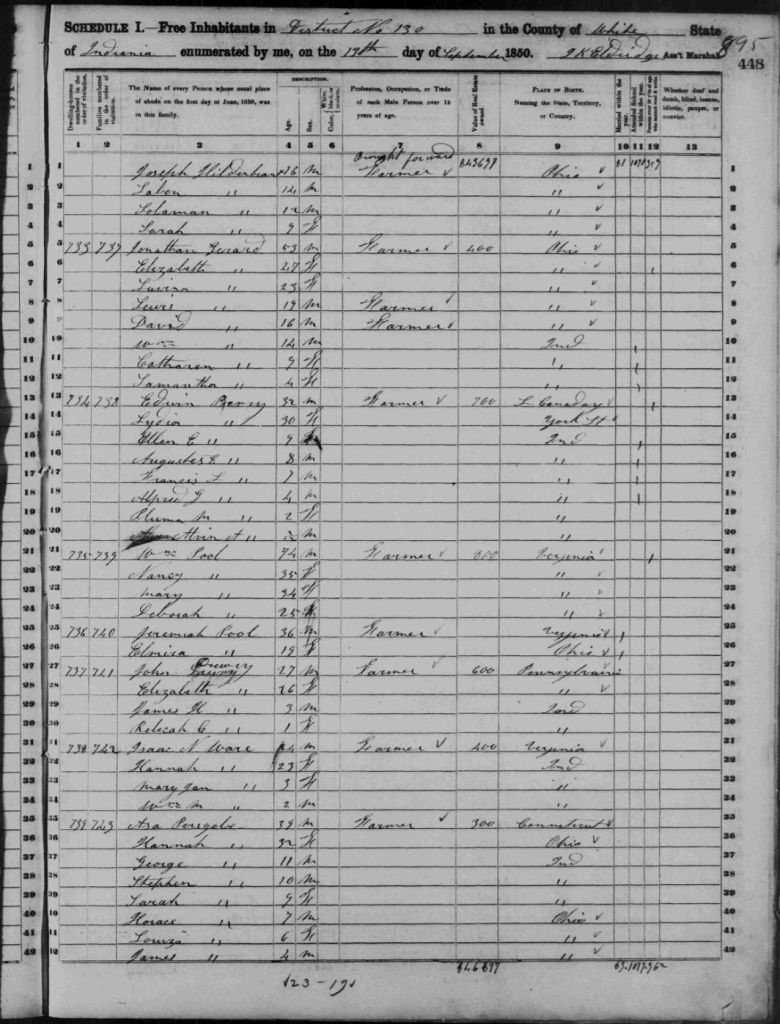 SCHEDULE I.—Free Inhabitants in District No 130 in the County of White State 895
of Indiania enumerated by me, on the 17th day of September 1850. J K Eldridge Ass't Marshal 448
DESCRIPTION.
Dwelling-houses numbered in the order of visitation. Families numbered in the order of visitation. The Name of every Person whose usual place of abode on the first day of June, 1850, was in this family. Age. Sex. Color, White, black, or mulatto. Profession, Occupation, or Trade of each Male Person over 15 years of age. Value of Real Estate owned. PLACE OF BIRTH. Naming the State, Territory, or Country. Married within the year. Attended School within the year. Persons over 20 y'rs of age who cannot read & write. Whether deaf and dumb, blind, insane, idiotic, pauper, or convict.
1 2 3 4 5 6 7 8 9 10 11 12 13
Brought forward 843697
1 Joseph Hilderbran 16 M Farmer Ohio 1
2 Labon " 14 M " 2
3 Solaman " 12 M " 3
4 Sarah " 9 F " 4
5 733 737 Jonathan Gerard 53 M Farmer 400 Ohio 5
6 Elizabeth " 27 F " 1 6
7 Lavina " 23 F " 7
8 Lewis " 19 M Farmer " 8
9 David " 16 M Farmer " 9
10 Wm " 14 M Ind 1 10
11 Catharen " 9 F " 1 11
12 Samantha " 4 F " 1 12
13 734 738 Edwin 32 M Farmer 700 L Canaday 1 13
14 Lydia " 30 F York St 14
15 Ellen E " 9 F Ind 1 15
16 Augustes E " 8 M " 1 16
17 Francis L " 7 M " 1 17
18 Alfred J " 4 M " 1 18
19 Pluma M " 2 F " 19
20 Alvin A " M " 20
21 735 739 Wm Pool 74 M Farmer 200 Verginia 1 21
22 Nancy " 35 F " 22
23 Mary " 34 F " 23
24 Deborah " 25 F " 24
25 736 740 Jeremiah Pool 36 M Farmer Verginia 1 25
26 Elmira " 19 F Ohio 1 26
27 737 741 John 27 M Farmer 600 Pennsylvania 27
28 Elizabeth " 26 F " 28
29 James H " 3 M Ind 29
30 Rebecah C " 1 F " 30
31 738 742 Isaac N Ware 24 M Farmer 400 Verginia 31
32 Hannah " 23 F Ind 32
33 Mary Jan " 3 F " 33
34 Wm M " 2 M " 34
35 739 743 Asa Perigobe 39 M Farmer 300 Connecticut 35
36 Hannah " 32 F Ohio 36
37 George " 11 M Ind 37
38 Stephen " 10 M " 38
39 Sarah " 9 F " 39
40 Horace " 7 M Ohio 40
41 Louiza " 6 F " 41
42 James " 4 M " 42
23-19 846897